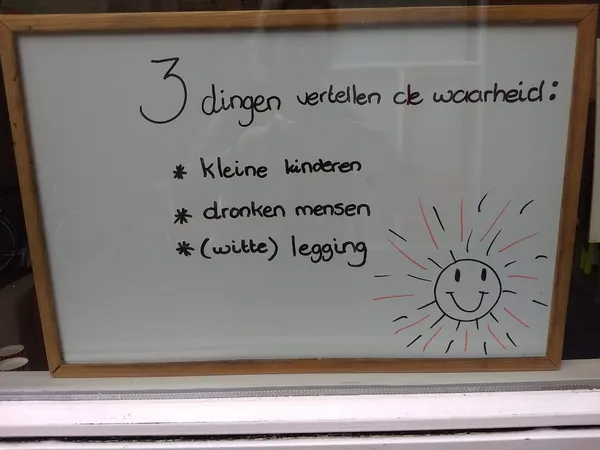 3 dingen vertellen de waarheid:
* kleine kinderen
* dronken mensen
* (witte) legging